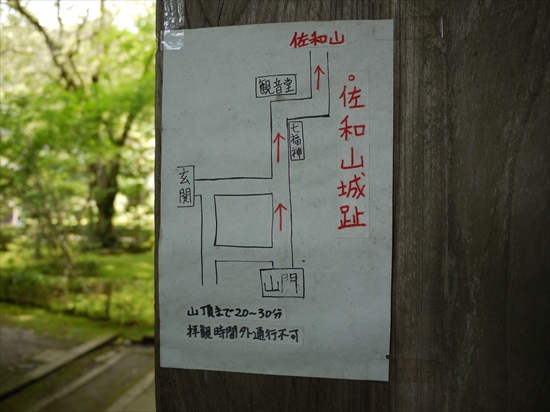 佐和山
観音堂
。佐和山城趾
七福神
玄関
山門
山頂まで20~30分
拝観時間外通行不可